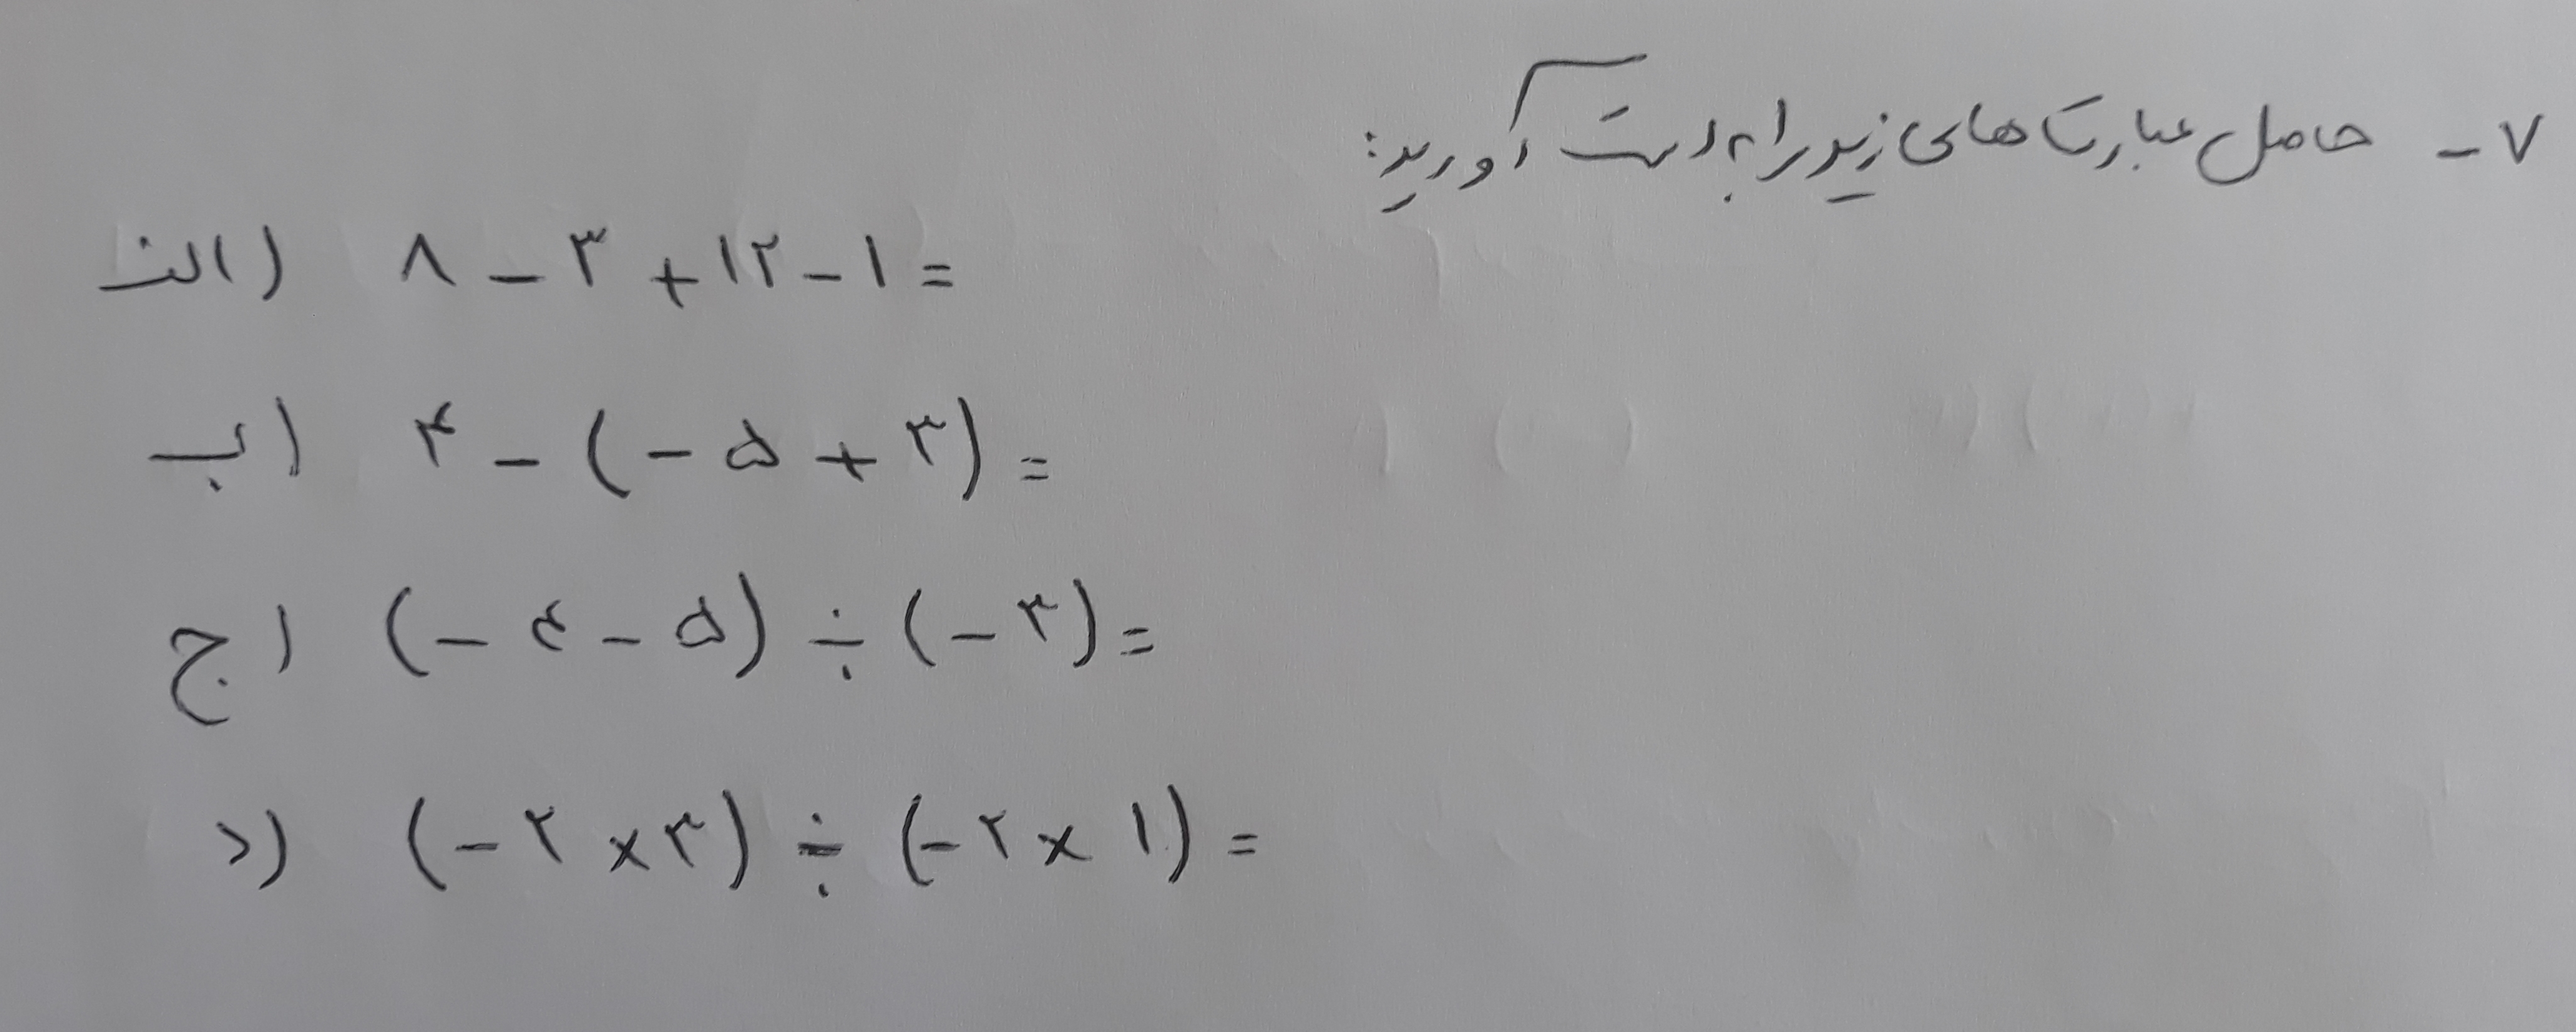 ۷- حاصل عبارت های زیر را به دست آورید:
الف) ۸ - ۳ + ۱۲ - ۱ =
ب) ۴ - (- ۵ + ۳) =
ج) (- ۴ - ۵) ÷ (- ۳) =
د) (- ۲ × ۳) ÷ (- ۲ × ۱) =